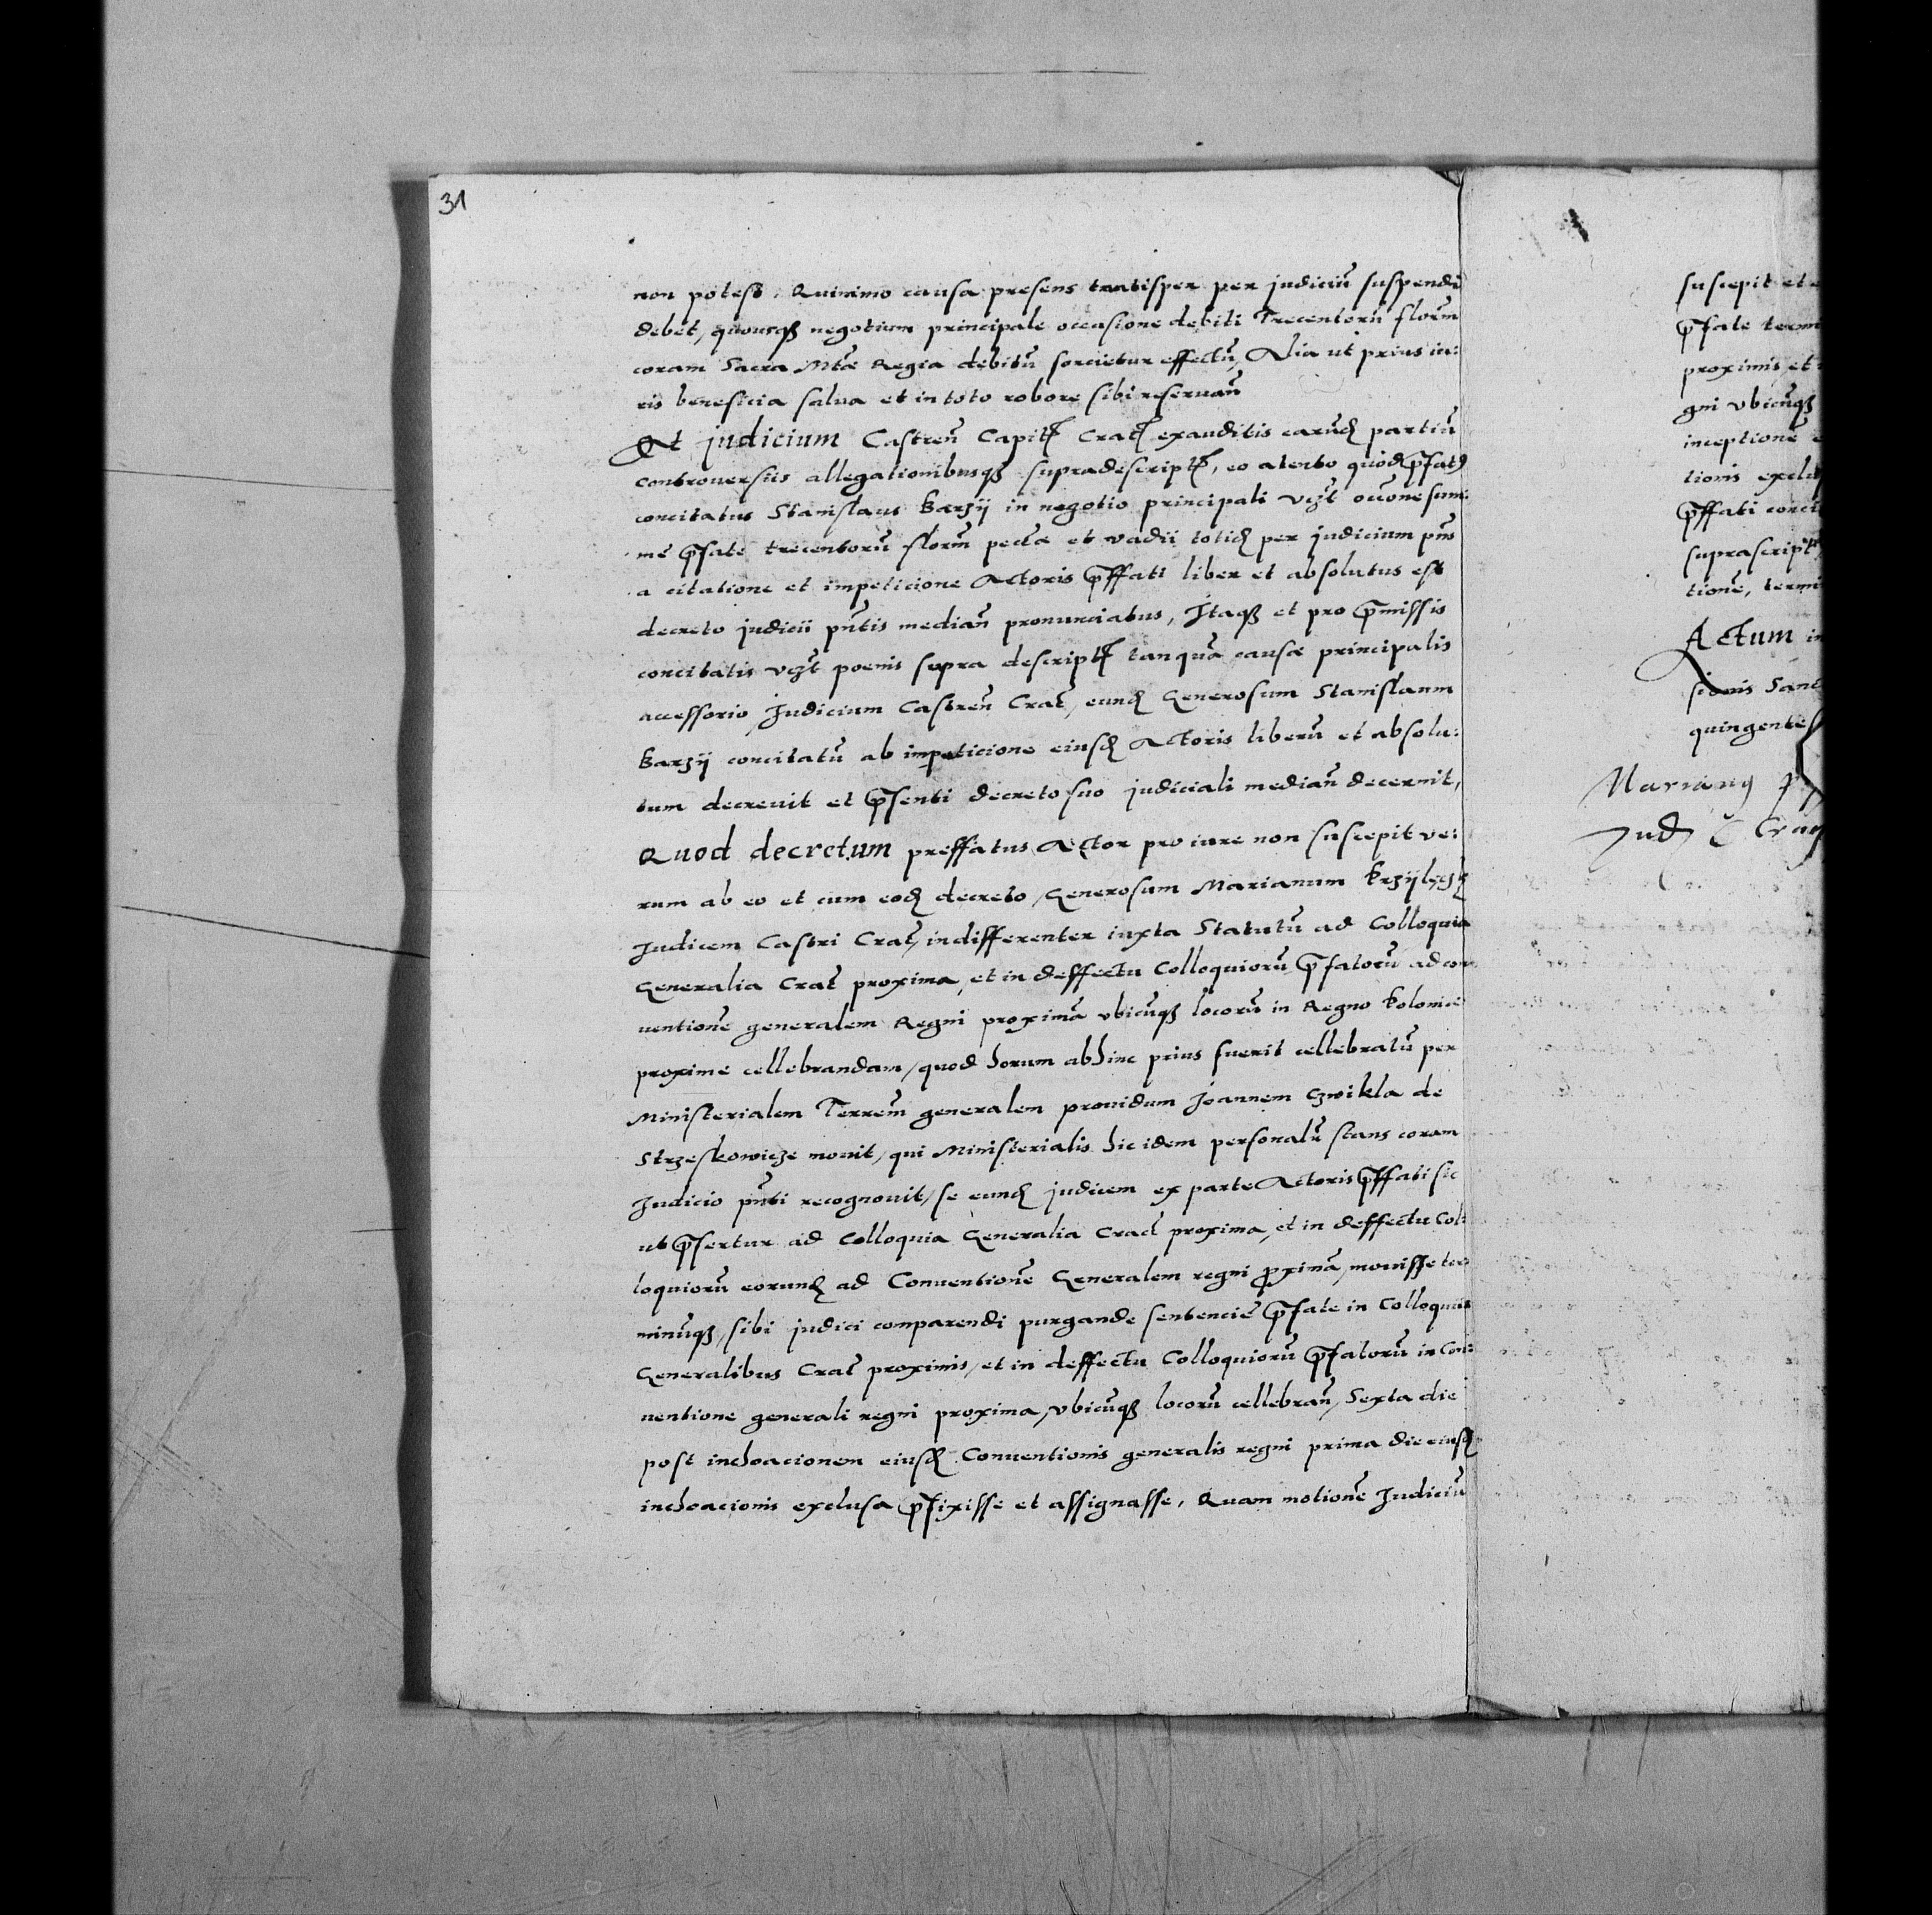 31
non potest. Quinimo causa presens tantisper per judiciũ suspendi
debet, quousqȝ negotium principale occasione debiti Trecentorũ floreñ
coram Sacra Mtẽ Regia debitũ sorcietur effectũ, Alia ut prius iu:
ris beneficia salua et in toto robore sibi reseruañ
At judicium Castreñ Capitꝭ Cracꝭ exauditis earũdꝭ partiũ
controuersiis allegationibusqȝ supradescriptꝭ, eo atento quod p̃fatꝰ
concitatus Stanislaus Karzÿ in negotio principali vigt̃ occõne sum:
me p̃fate trecentorũ floreñ pecũe et vadii totidꝭ per judicium pñs
a citatione et impeticione Actoris p̃ffati liber et absolutus est
decreto judicii pñtis mediañ pronunciatus, Itaqȝ et pro p̃missis
concitatis vigt̃ poenis supra descriptꝭ tanquã causæ principalis
accessorio Judicium Castreñ Crac̃, eundꝭ Generosum Stanislaum
Karzÿ concitatũ ab impeticione eiusdꝭ Actoris liberũ et absolu:
tum decreuit et p̃senti decreto suo judiciali mediañ decernit,
Quod decretum preffatus Actor pro iure non suscepit ve:
rum ab eo et cum eodꝭ decreto, Generosum Marianum
Judicem Castri Crac̃, indifferenter iuxta Statutũ ad Colloquia
Generalia Crac̃ proxima, et in deffectu Colloquiorũ p̃fatorũ ad con
uentionẽ generalem Regni proximã vbicũqȝ locorũ in Regno Polonie
proxime cellebrandam, quod horum abhinc prius fuerit cellebratũ per
Ministerialem Terreñ generalem prouidum Joannem Czwikla de
Strzeskowicze mouit, qui Ministerialis hic idem personalr̃ stans coram
Judicio pñti recognouit, se eundꝭ judicem ex parte Actoris p̃ffati sic
ut p̃fertur ad Colloquia Generalia Crac̃ proxima, et in deffectu Col:
loquiorũ eorundꝭ ad Conuentionẽ Generalem regni p̃ximã, mouisse ter
minũqȝ, sibi judici comparendi purgande sentencie p̃fate in Colloquiis
Generalibus Crac̃ proximis, et in deffectu Colloquiorũ p̃fatorũ in Con:
uentione generali regni proxima, vbicũqȝ locorũ cellebrañ, Sexta die
post inchoacionem eiusdꝭ Conuentionis generalis regni prima die eiusdꝭ
inchoacionis exclusa p̃fixisse et assignasse, Quam motionẽ Judiciũ
suscepit et
p̃fate termi
proximis et
gni vbicũqȝ
inceptionẽ
tionis exclu
p̃ffati conci
suprascriptꝭ
tionẽ, termi
Actum in
sionis Sanc
quingentes
Marianꝰ
Jud